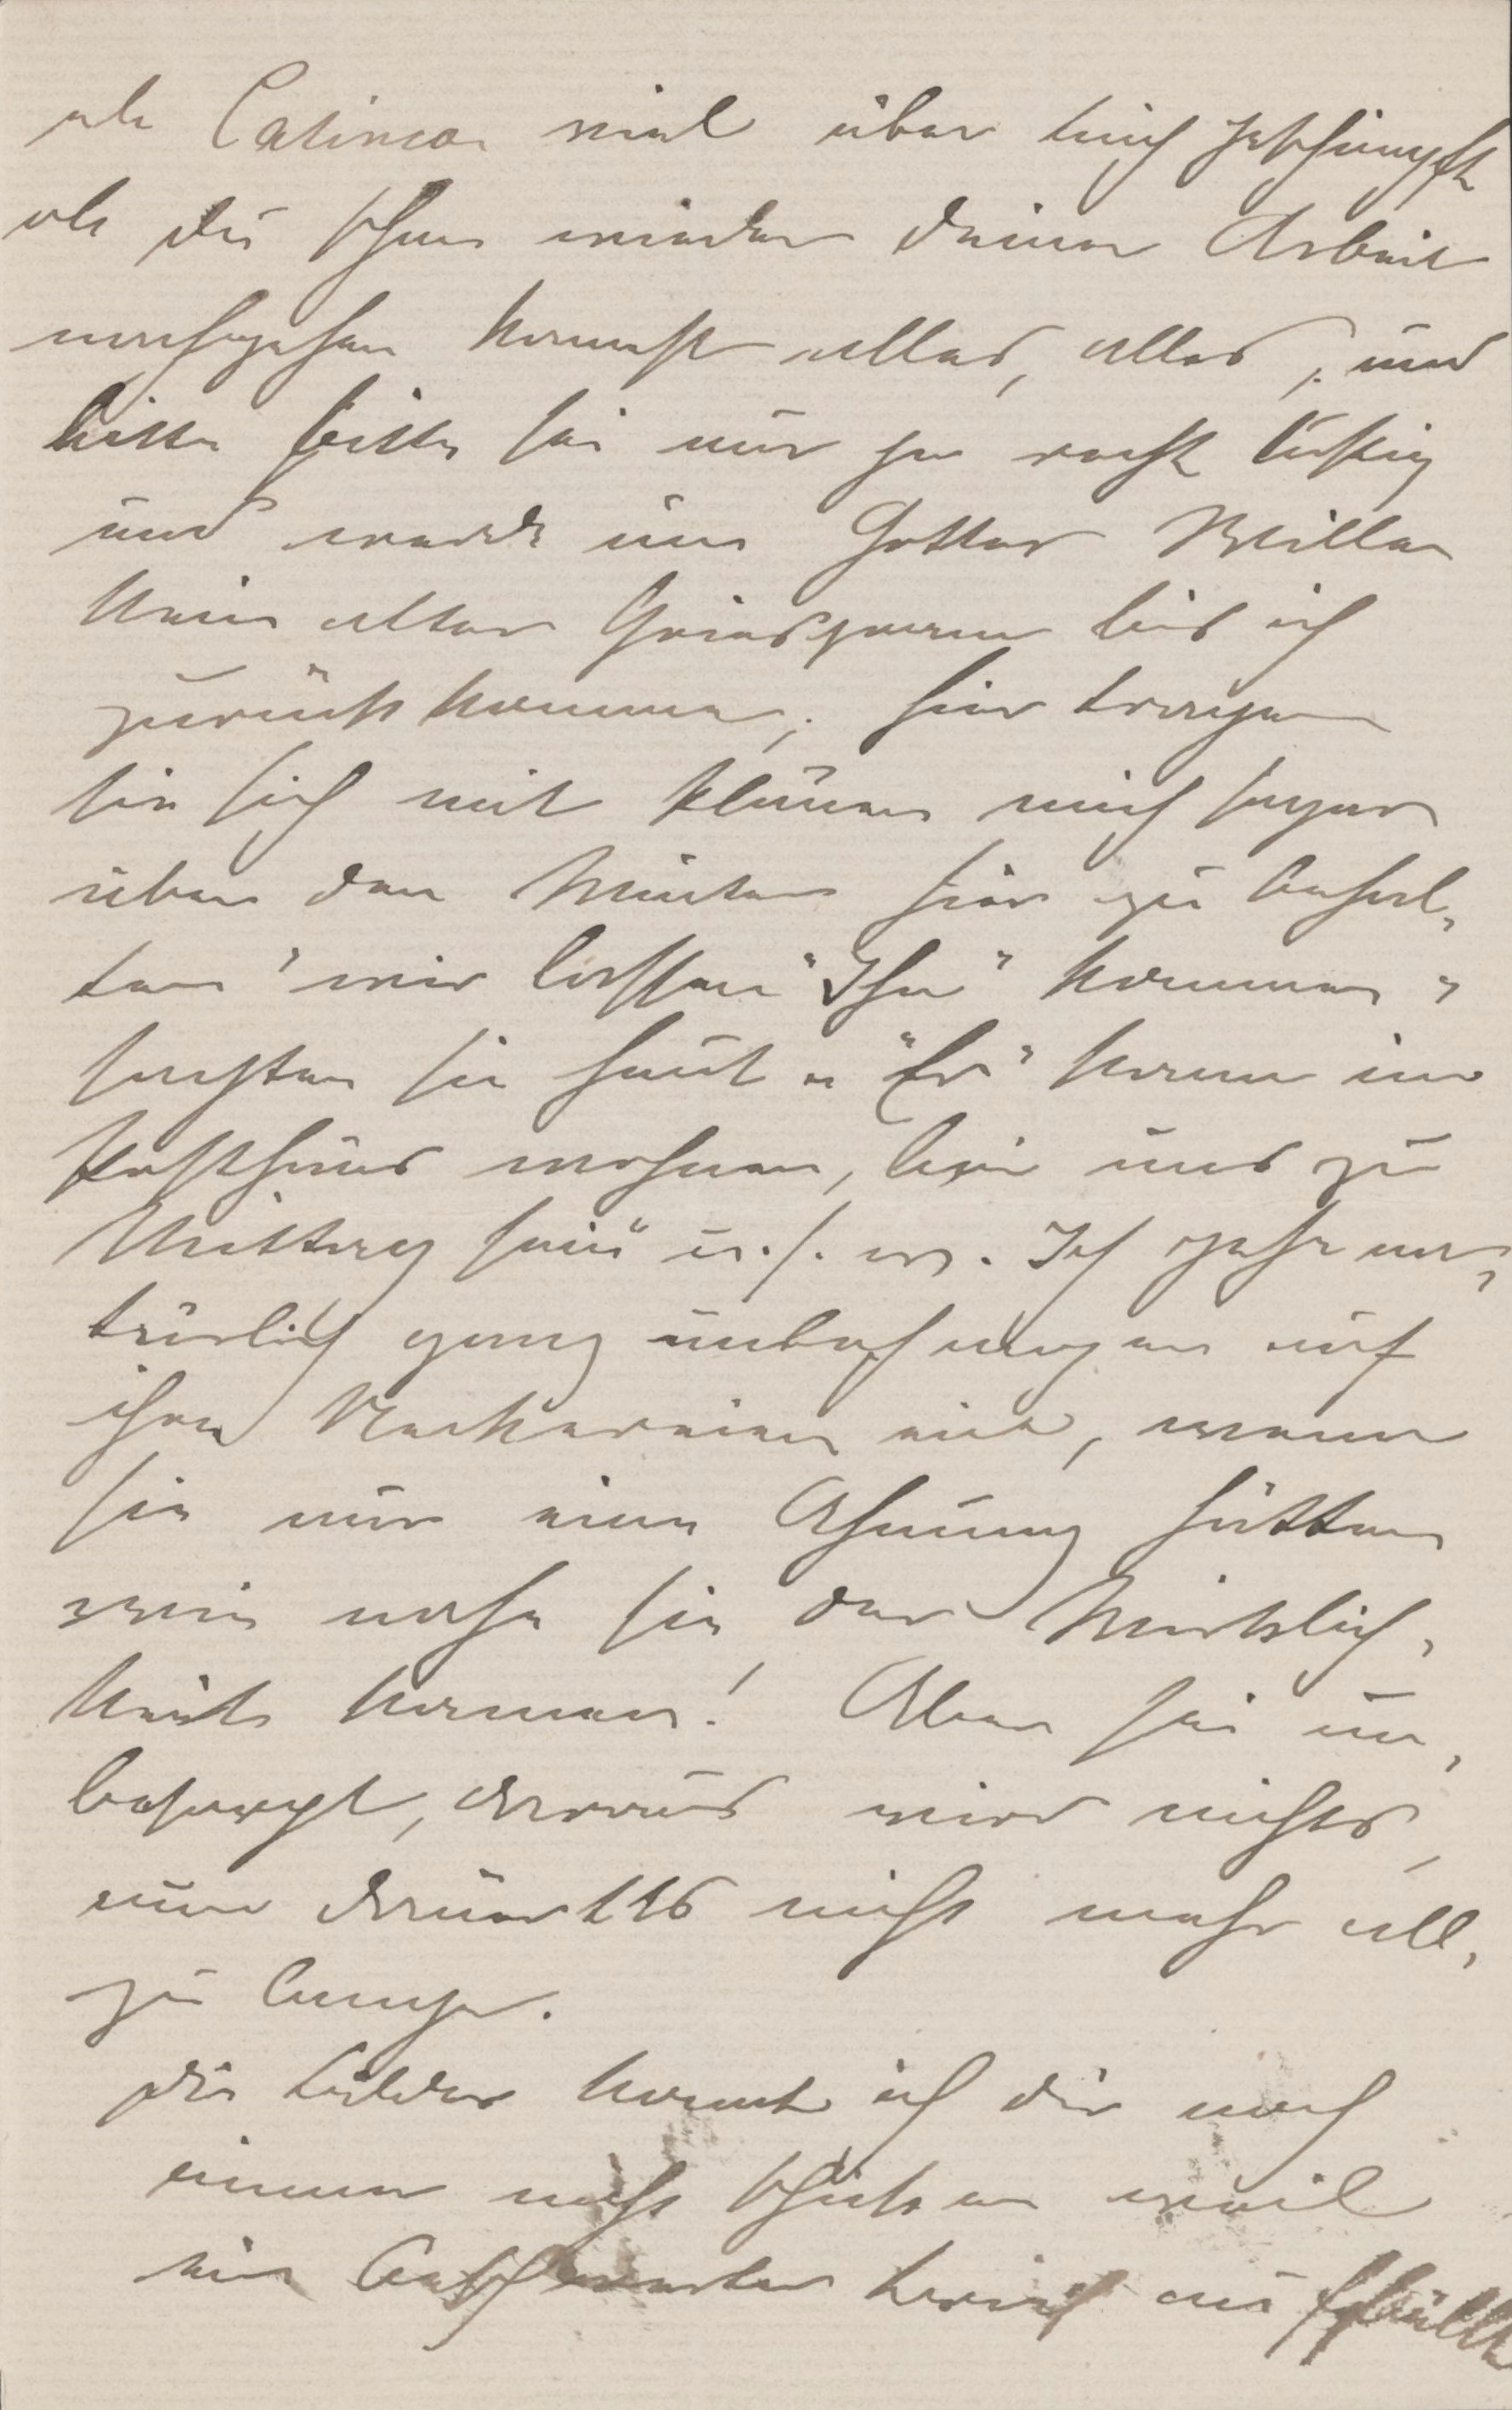 als Catinca viel über dich geschimpft
als du schon wieder deiner Arbeit
nachgehen kannst alles, alles, und
bitte bitte sei nur ja recht lustig
und werde um Gottes Willen
kein alter Griesgram bis ich
zurück komme; hier tragen
sie sich mit Plänen mich sogar
über den Winter hier zu behal-
ten "wir lassen "Ihn" kommen"
sagten sie heut "Er" kann im
Posthaus wohnen, bei uns zu
Mittag sein u. s. w. Ich gehe na-
türlich ganz unbefangen auf
ihre Neckereien ein, wenn
sie nur eine Ahnung hätten
wie nahe sie der Wirklich-
keit kommen! Aber sei un-
besorgt, daraus wird nichts,
nun dauert es nicht mehr all-
zu lange.
Die Bilder konnt ich dir noch
immer nicht schicken weil
ein